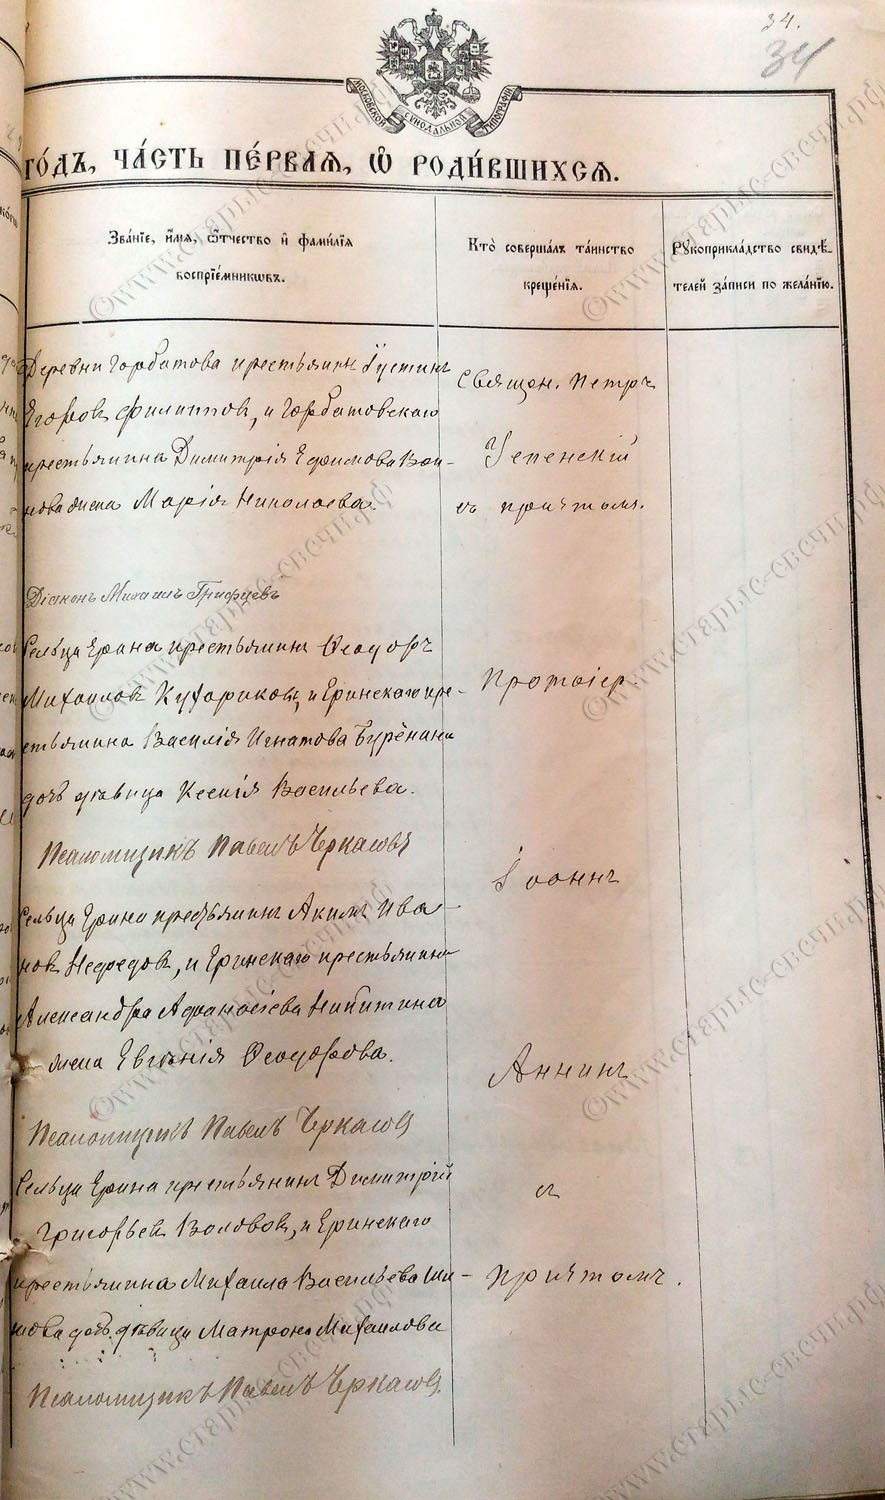 34.
34
МОСКОВСКОЙ СѴНОДАЛЬНОЙ ТИПОГРАФІИ
ГО́ДЪ, ЧА́СТЬ ПЕ́РВАЯ, Ѽ РОДИ́ВШИХСЯ.
Зва́нїе, и҆́мѧ, ѻ҆́тчество и҆ фами́лїѧ
воспрїе́мникѡвъ.
Кто̀ соверша́лъ та́инство
креще́нїѧ.
Рꙋкоприкла́дство свидѣ́-
телей за́писи по жела́нїю.
Деревни Горбатова крестьянин Іустинъ
Егоров Филиппов, и Горбатовскаго
крестьянина Димитрія Ефимова Вои-
нова жена Марія Николаева.
Священ. Петръ
Успенскій
съ причтомъ.
Діаконъ Михаилъ Грифцевъ
Сельца Ерина крестьянинъ Ѳеодоръ
Михаиловъ Кухариковъ, и Еринскаго кре-
стьянина Василія Игнатова Буренина
дочь дѣвица Ксенія Васильева.
Псаломщикъ Павелъ Черкасовъ
Сельца Ерина крестьянинъ Акимъ Ива-
нов Нефедов, и Еринскаго крестьянина
Александра Аѳанасіева Никитина
жена Евгенія Ѳеодорова.
Псаломщикъ Павелъ Черкасовъ
Сельца Ерина крестьянинъ Димитрій
Григорьев Воловов, и Еринскаго
крестьянина Михаила Васильева Ши-
шова дочь дѣвица Матрона Михаилова
Псаломщикъ Павелъ Черкасовъ.
Протоіер.
Іоаннъ
Аннинъ
съ
причтомъ.
©www.старые-свечи.рф